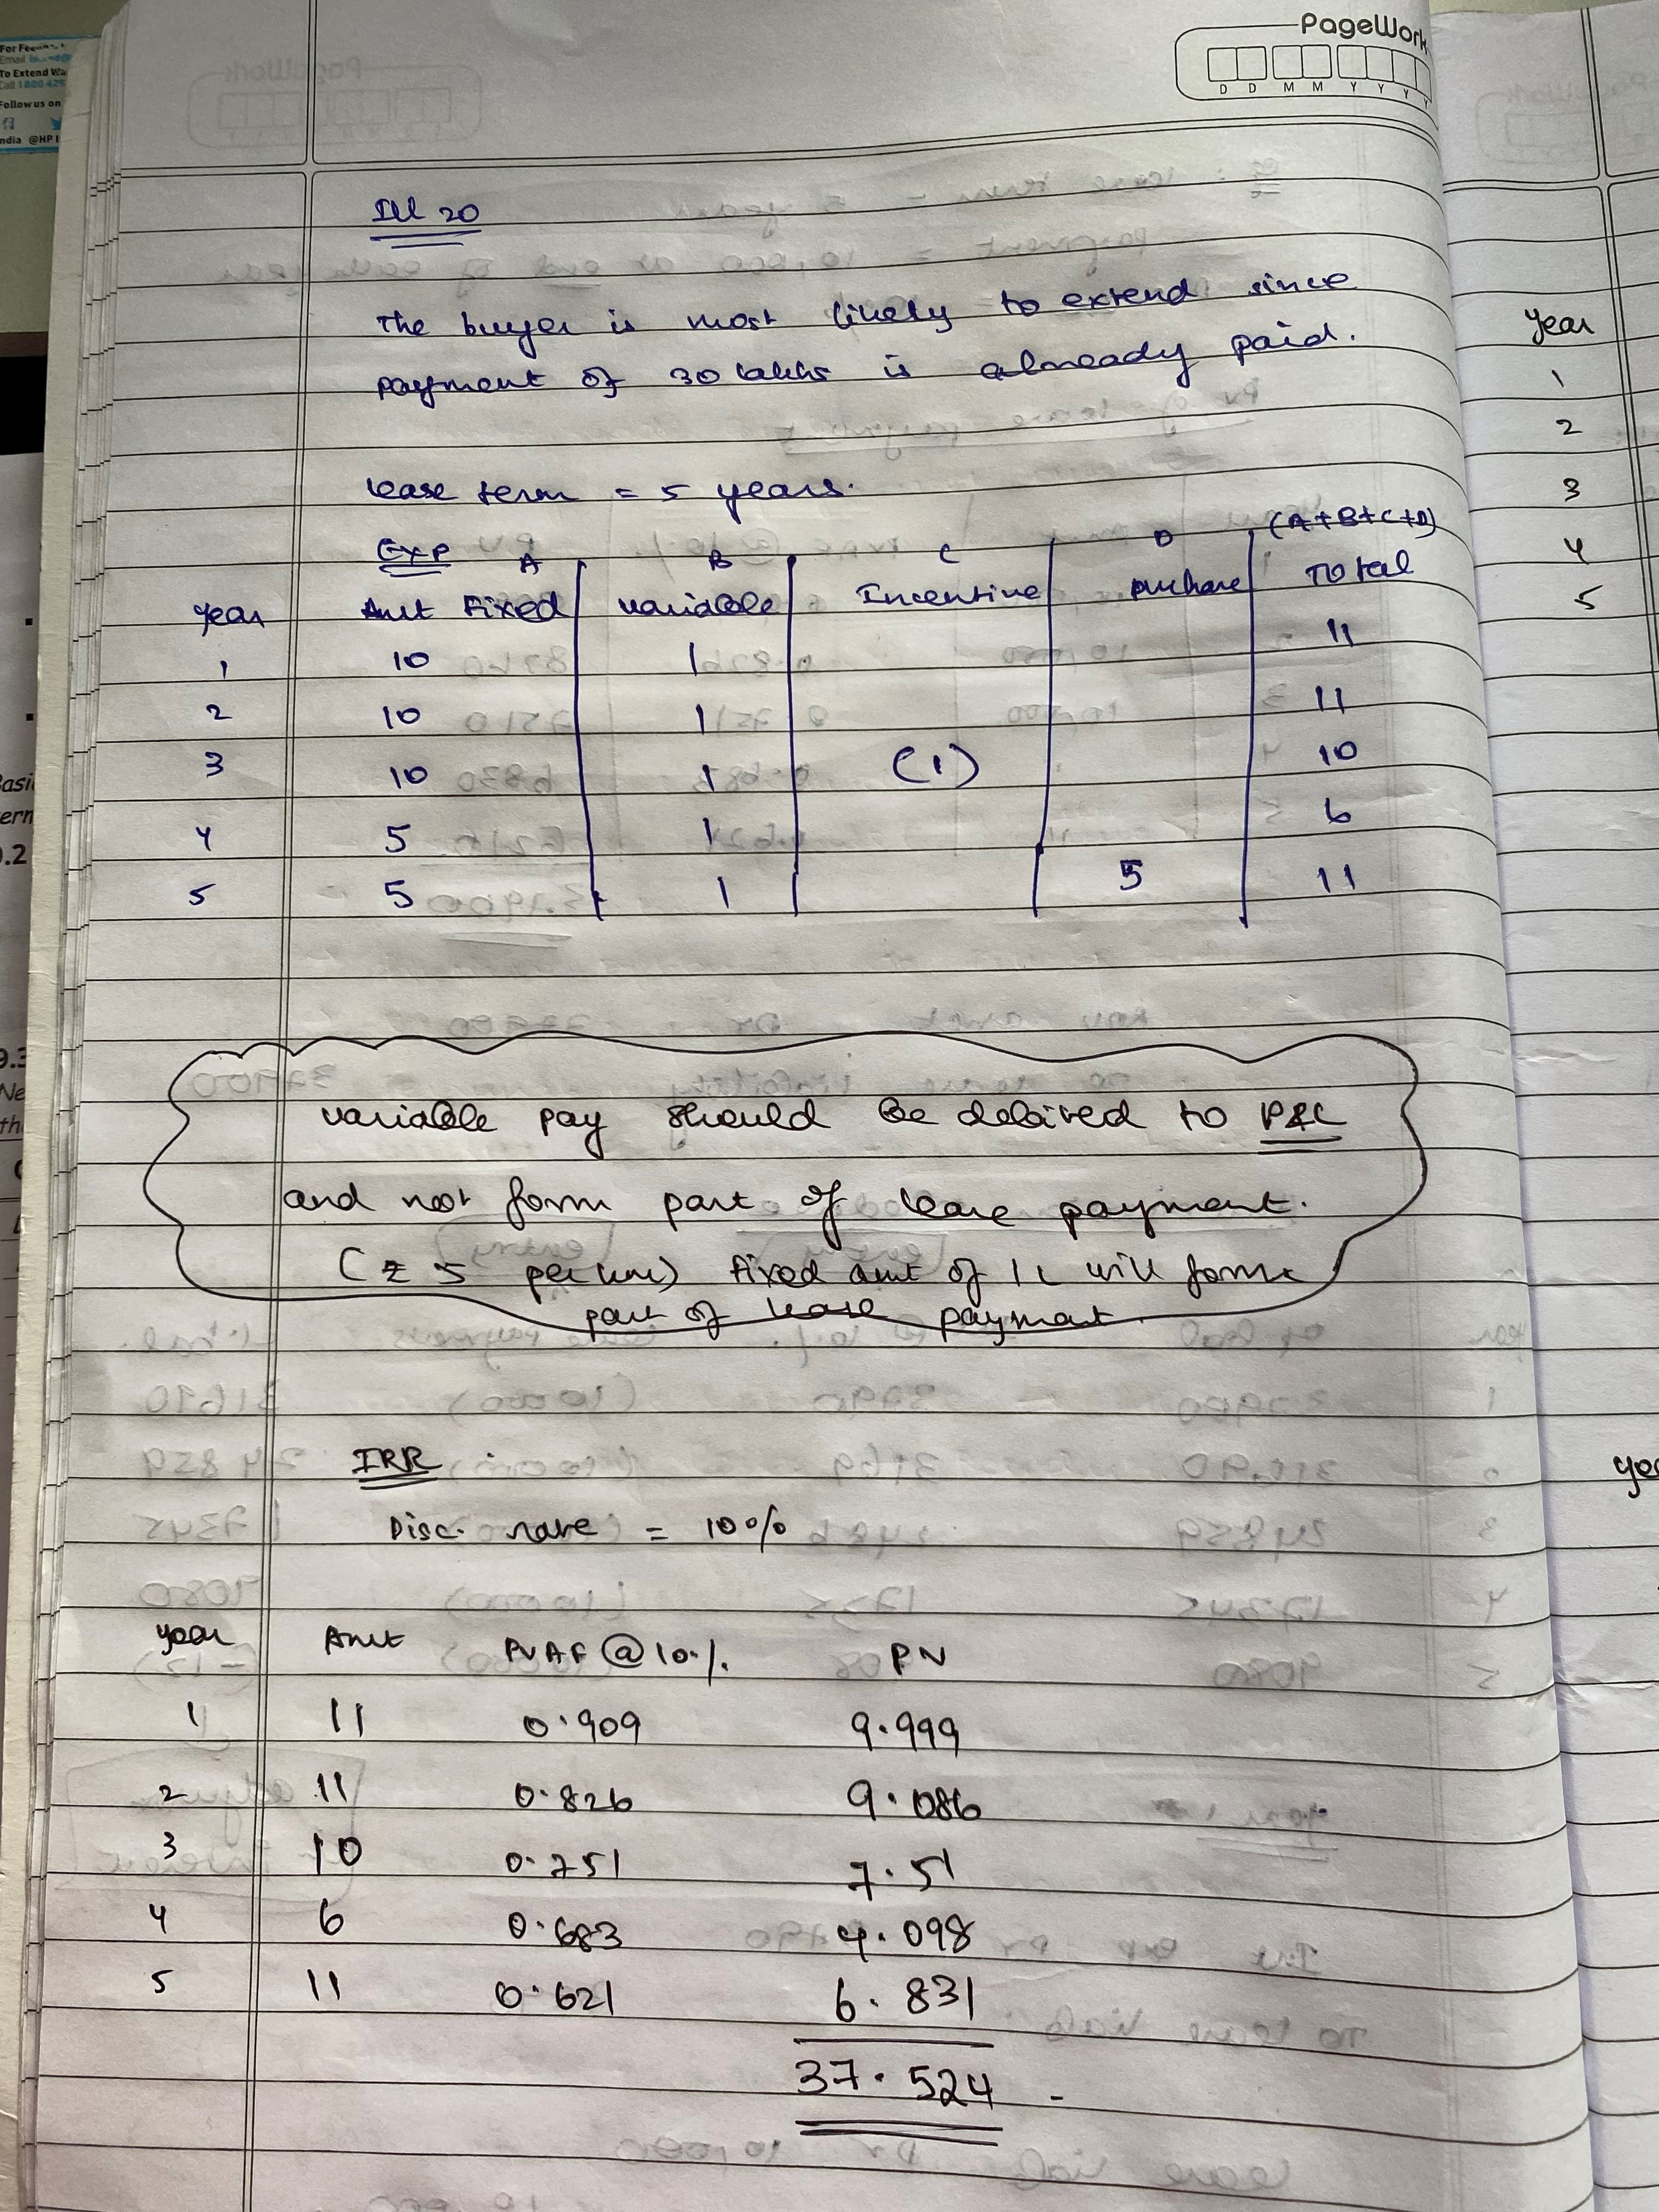 PageWork
D D M M Y Y Y Y
Ill 20
The buyer is most likely to extend since
payment of 30 lakhs is already paid.
lease term = 5 years.
Exp A B C D (A+B+C+D)
year Amt Fixed variable Incentive purchase Total
1 10 1 11
2 10 1 11
3 10 1 (1) 10
4 5 1 6
5 5 1 5 11
variable pay should be debited to P&L
and not form part of lease payment.
(₹ 5 per km) fixed amt of 1L will form
part of lease payment.
IRR
Disc. rate = 10%
year Amt PVAF @ 10%. PV
1 11 0.909 9.999
2 11 0.826 9.086
3 10 0.751 7.51
4 6 0.683 4.098
5 11 0.621 6.831
37.524
year
1
2
3
4
5
For
Email
To Extend
Call 1800 425
Follow us on
@HP